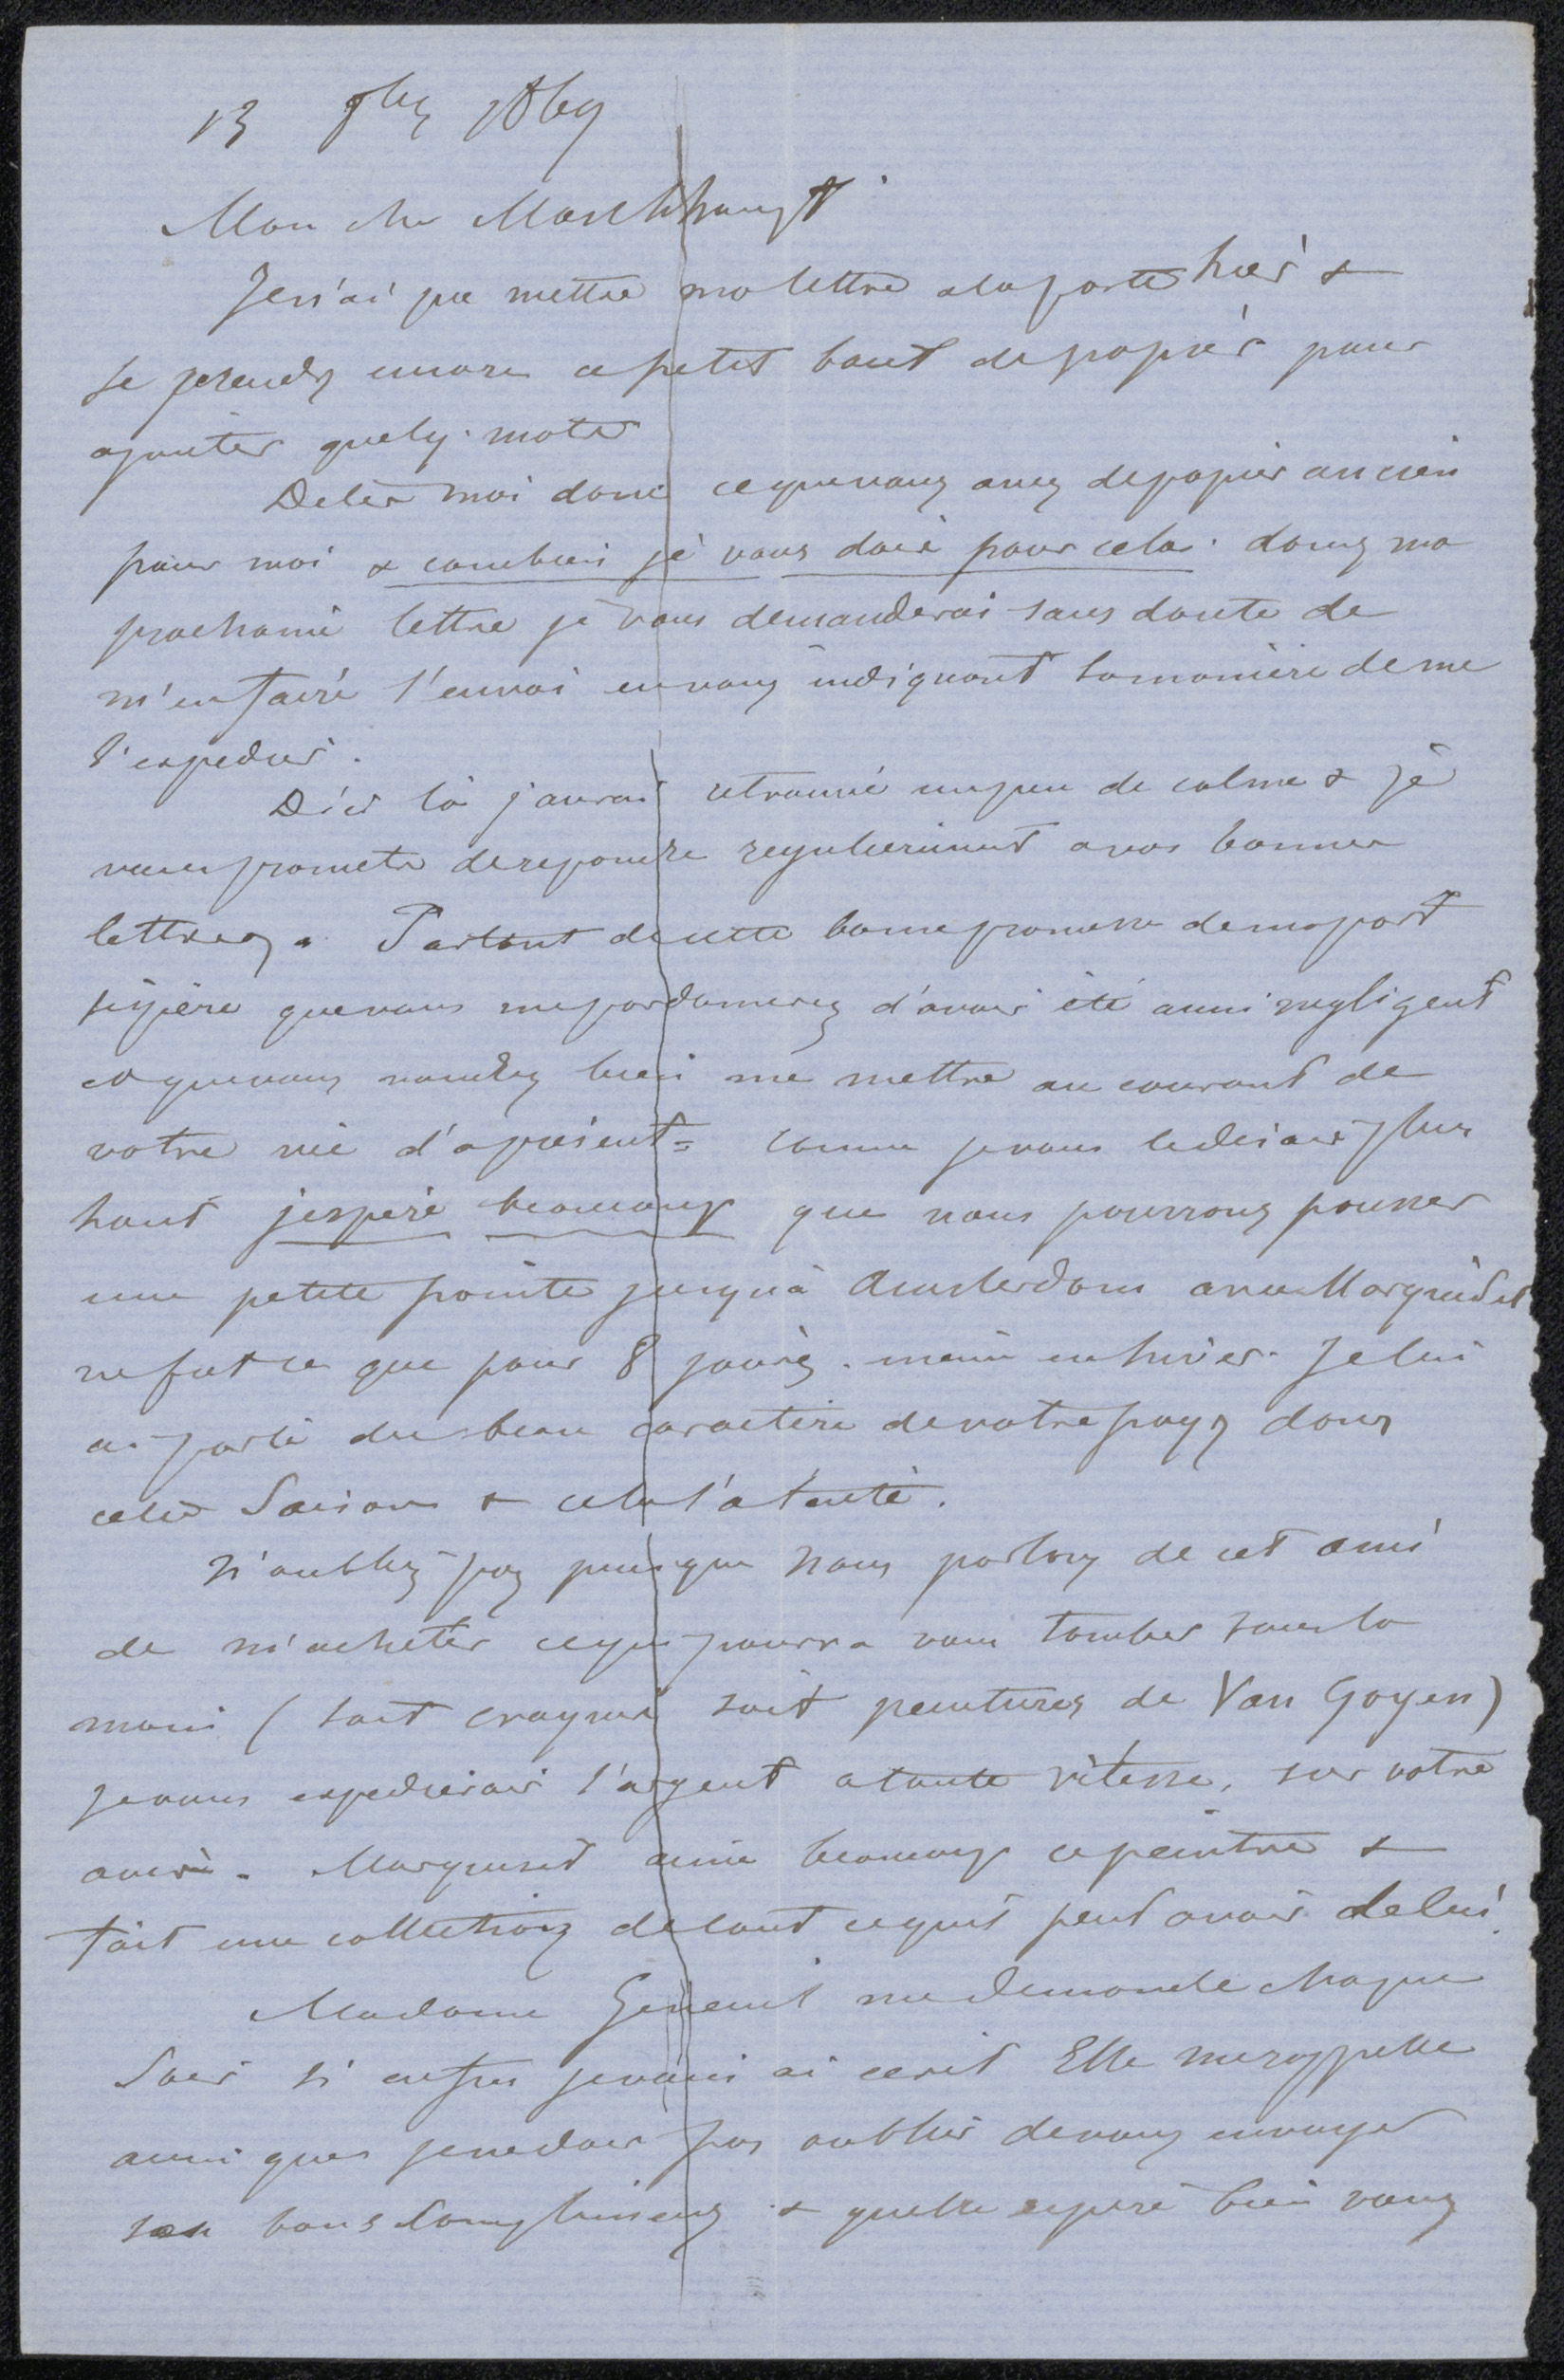 13 8bre 1869
Mon cher
Je n'ai pu mettre ma lettre a la poste hier &
Je prends encore ce petit bout de papier pour
ajouter quelq. mots
Dites moi donc ce que vous avez de papier ancien
pour moi & combien je vous dois pour cela. dans ma
prochaine lettre je vous demanderai sans doute de
m'en faire l'envoi en vous indiquant la manière de me
l'expedier.
D'ici là j'aurai retrouvé un peu de calme & je
vous promets de repondre regulierement a vos bonnes
lettres. Partant de cette bonne promesse de ma part
j'espère que vous me pardonnerez d'avoir été aussi negligent
et que vous voudrez bien me mettre au courant de
votre vie d'apresent = comme je vous le disais plus
haut j'espère beaucoup que nous pourrons pousser
une petite pointe jusqu'à Amsterdam avec Marguiset
ne fut ce que pour 8 jours. même en hiver. Je lui
ai parlé du beau caractère de votre pays dans
cette Saison & cela l'a tenté.
N'oubliez pas puisque nous parlons de cet ami
de m'acheter ce qui pourra vous tomber sous la
main (soit crayons soit peintures de Van Goyen)
je vous expedierais l'argent a toute vitesse, sur votre
avis. Marguiset aime beaucoup ce peintre &
fait une collection de tout ce qu'il peut avoir de lui.
Madame me demande chaque
Soir si enfin je vous ai ecrit Elle me rappelle
aussi que je ne dois pas oublier de vous envoyer
ses bons Complimens & quelle espere bien vous